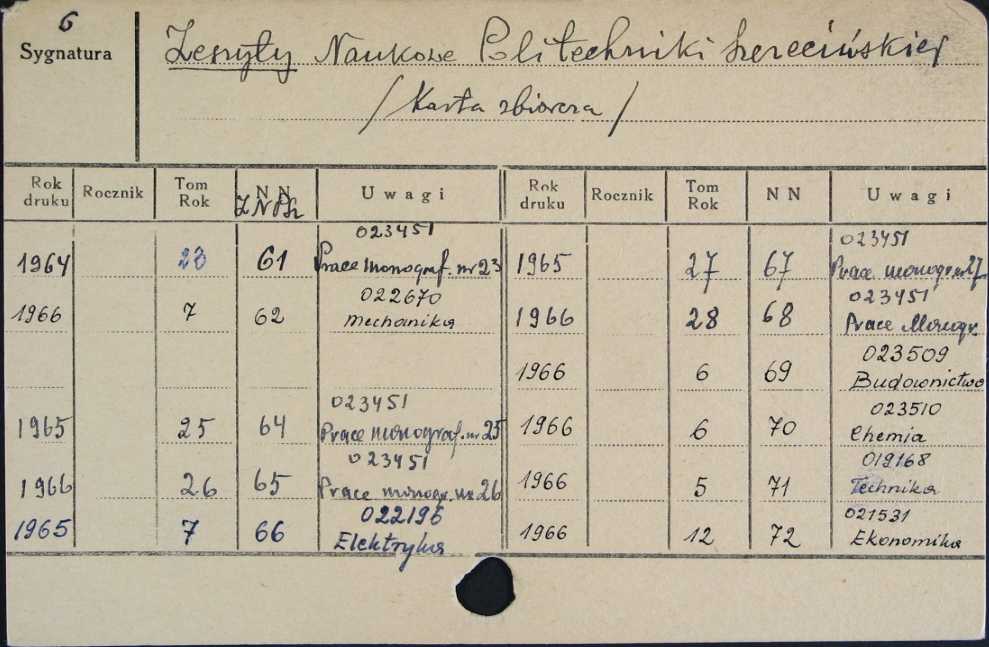 6
Sygnatura
Zeszyty Naukowe Politechniki Szczecińskiej
/Karta zbiorcza/
Rok druku Rocznik Tom Rok N N ZNPSz Uwagi
1964 23 61 023451 Prace monograf. nr 23
1966 7 62 022670 Mechanika
1965 25 64 023451 Prace monograf. nr 25
1966 26 65 023451 Prace monogr. nr 26
1965 7 66 022196 Elektryka
Rok druku Rocznik Tom Rok N N Uwagi
1965 27 67 023451 Prace monogr. nr 27
1966 28 68 023451 Prace Monogr.
1966 6 69 023509 Budownictwo
1966 6 70 023510 Chemia
1966 5 71 019168 Technika
1966 12 72 021531 Ekonomika